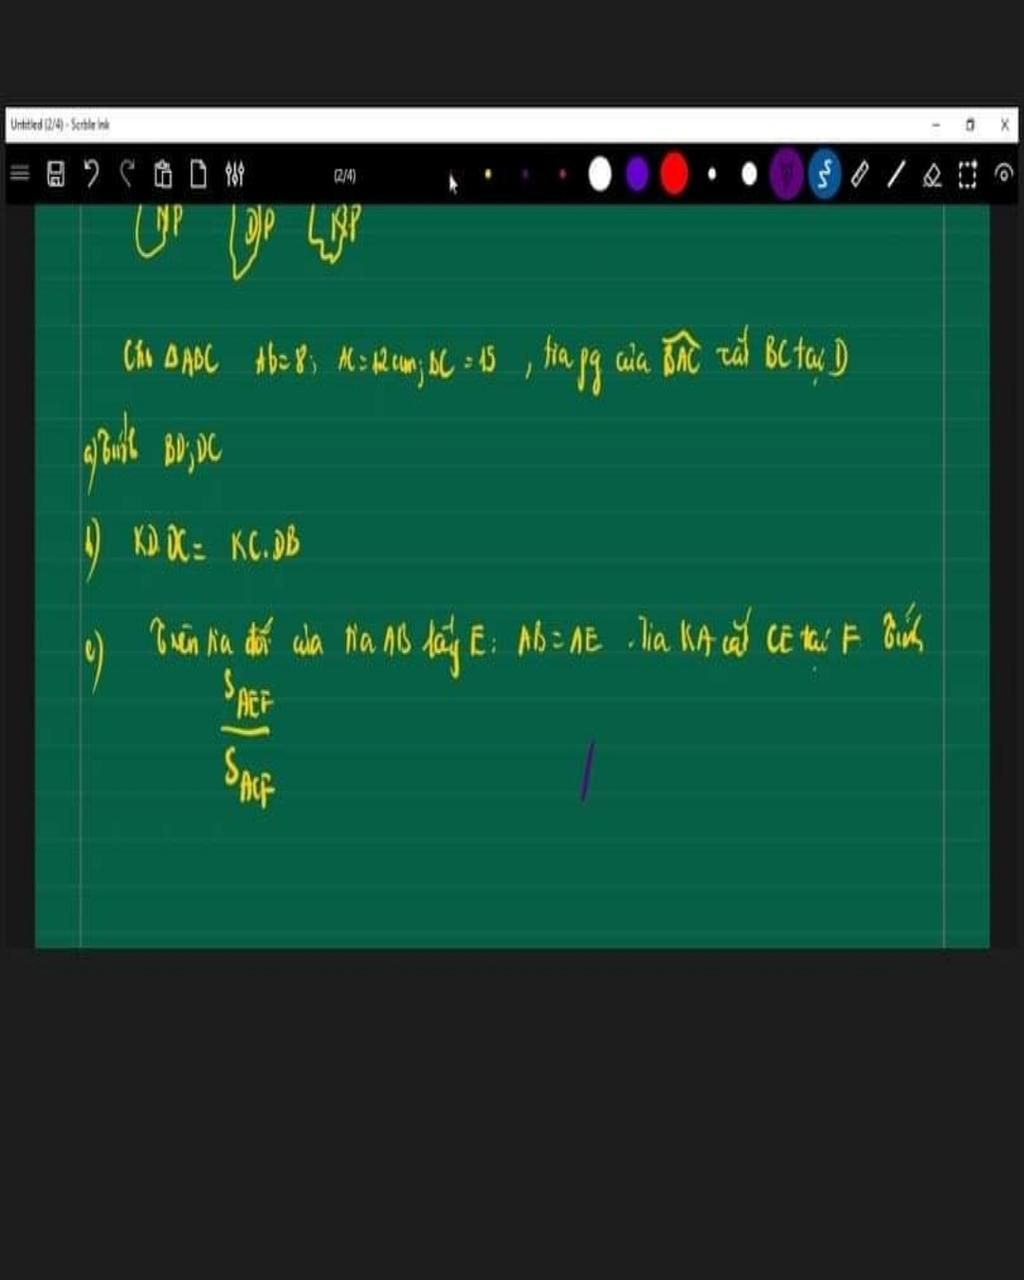 Untitled (2/4) - Scrble Ink
(2/4)
NP DP NP
Cho ΔABC Ab=8; AC=12cm; BC=15, tia pg của BAC cắt BC tại D
a) Tính BD; DC
b) KD.DC= KC.DB
c) Trên tia đối của tia AB lấy E: AB=AE. Tia KA cắt CE tại F Tính
S AEF
S ACF